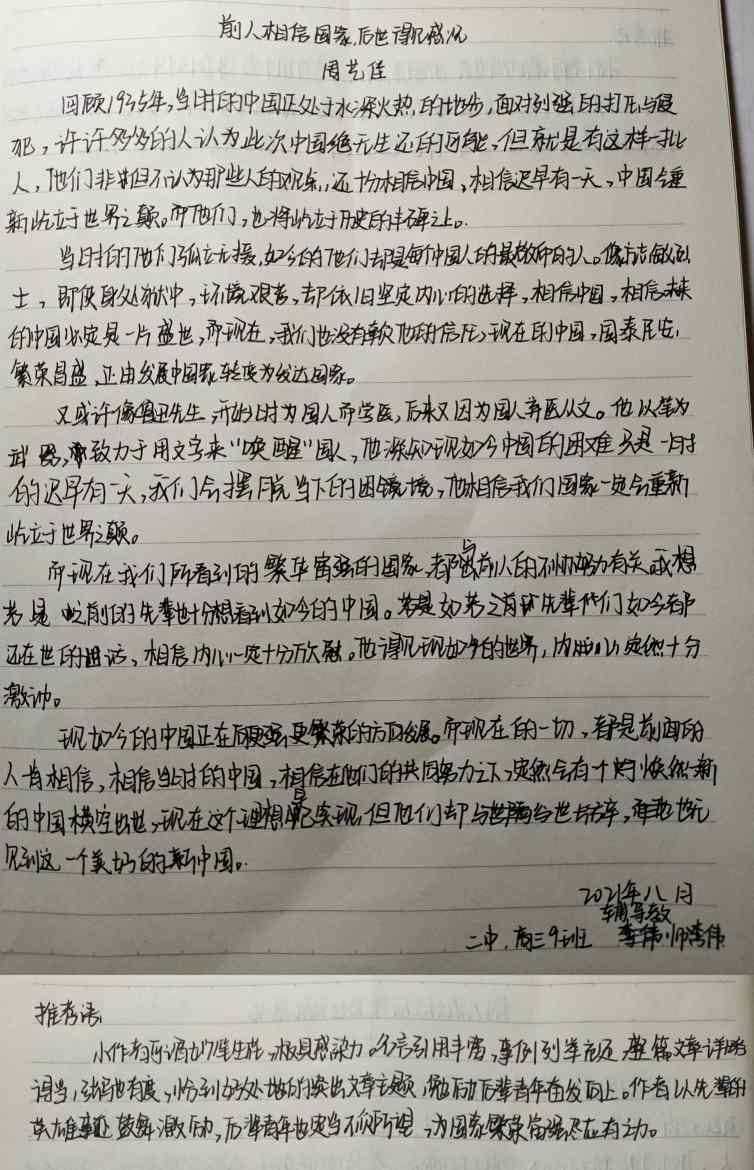 前人相信国家,后世得见盛况
周艺佳
回顾1935年,当时的中国正处于水深火热,的地步,面对列强的打压与侵
犯,许许多多的人认为此次中国绝无生还的可能,但就是有这样一批
人,他们非但不认为那些人的观念,还十分相信中国,相信迟早有一天,中国会重
新屹立于世界之巅。而他们,也将屹立于历史的丰碑之上。
当时的他们孤立无援,如今的他们却是每个中国人的最敬仰的人。像方志敏烈
士,即使身处狱中,环境艰苦,却依旧坚定内心的选择,相信中国,相信未来
的中国必定是一片盛世,而现在,我们也没有辜负他的信任,现在的中国,国泰民安,
繁荣昌盛,正由发展中国家转变为发达国家。
又或许像鲁迅先生,开始时为国人而学医,后来又因为国人弃医从文。他以笔为
武器,致力于用文字来“唤醒”国人,他深知现如今中国的困难只是一时
的迟早有一天,我们会摆脱当下的困境,他相信我们国家一定会重新
屹立于世界之巅。
而现在我们所看到的繁华富强的国家,都与前人的不懈努力有关。我想
若是 之前的先辈也十分想看到如今的中国。若是如若之前的先辈他们如今都
还在世的话,相信内心一定十分欣慰。他得见现如今的世界,内心定然十分
激动。
现如今的中国正在向更强更繁荣的方向发展。而现在的一切,都是前面的
人肯相信,相信当时的中国,相信在他们的共同努力之下,定然会有一个焕然一新
的中国横空出世,现在这个理想早已实现,但他们却与世长辞,再也无
见到这一个美好的新中国。
2021年八月
辅导教
二中.高三9班 师李伟
推荐语:
小作者词句生性,极具感染力。名言引用丰富,事例列举充足 整篇文章详略
得当,张弛有度,恰到好处地的突出文章主题,勉励后辈青年奋发向上。作者以先辈的
英雄事迹 鼓舞激励,后辈青年也定当不负所望,为国家繁荣富强尽在有之动。